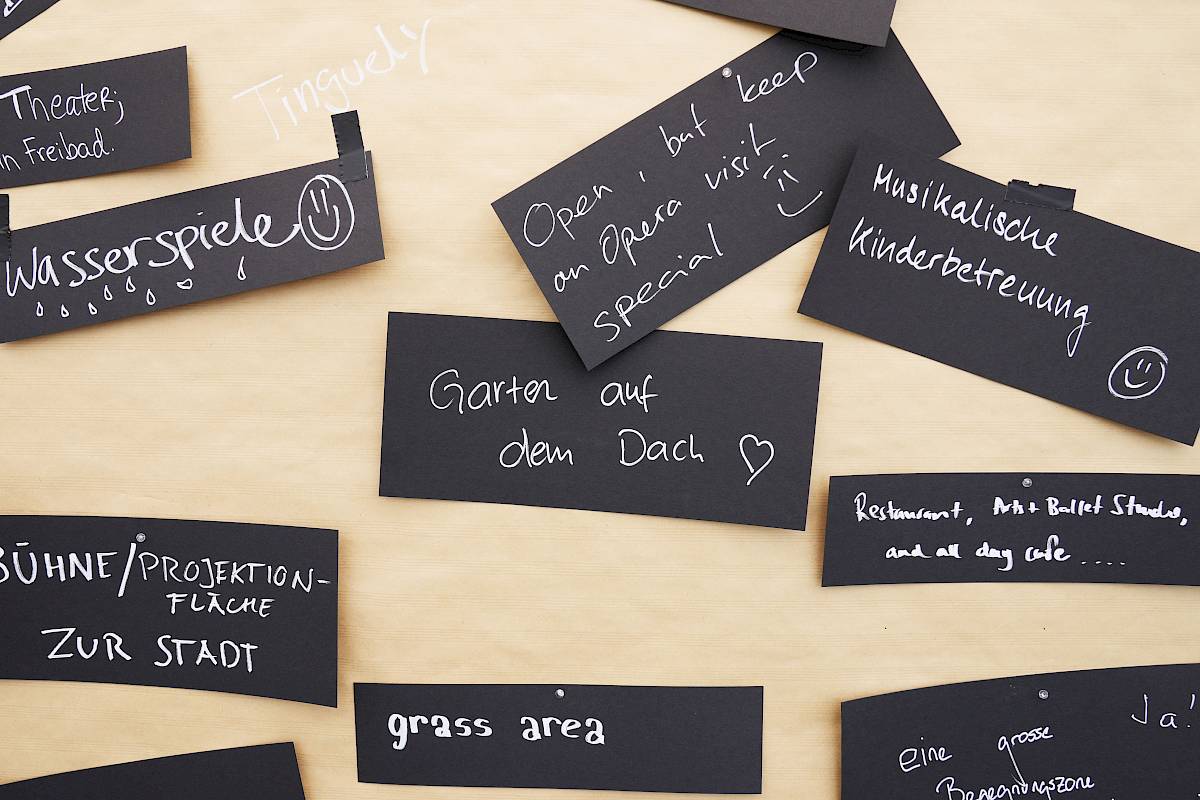 Theater;
in Freibad.
Tinguely
Wasserspiele
Open, but keep
an Opera visit
special
Musikalische
Kinderbetreuung
Garten auf
dem Dach
Restaurant, Arts + Ballet Studio,
and all day cafe ....
BÜHNE/PROJEKTION-
FLÄCHE
ZUR STADT
grass area
Ja!
eine grosse
Begegnungszone